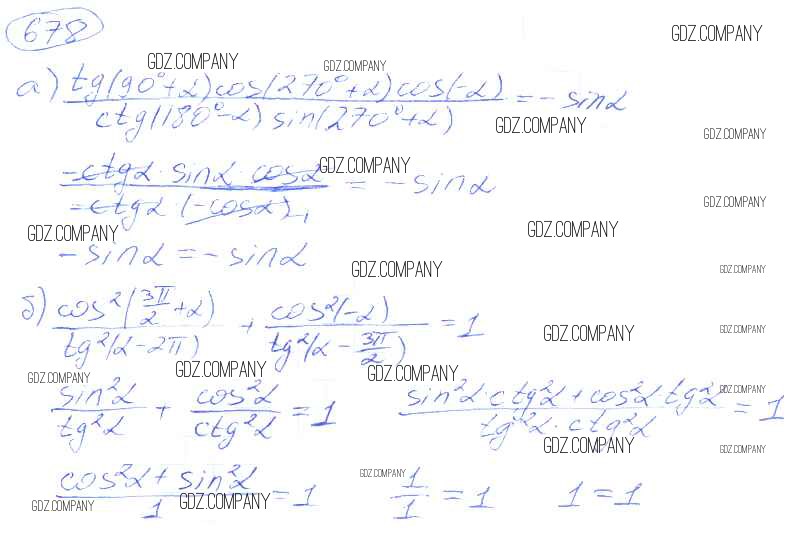 678
GDZ.COMPANY
GDZ.COMPANY GDZ.COMPANY
а) tg(90°+α)cos(270°+α)cos(-α) / ctg(180°-α) sin(270°+α) = - sinα
GDZ.COMPANY
GDZ.COMPANY
GDZ.COMPANY
-ctgα · sinα · cosα / -ctgα · (-cosα) = - sinα
GDZ.COMPANY
GDZ.COMPANY GDZ.COMPANY
- sinα = - sinα
GDZ.COMPANY GDZ.COMPANY
б) cos²(3π/2 + α) / tg²(α - 2π) + cos²(-α) / tg²(α - 3π/2) = 1
GDZ.COMPANY GDZ.COMPANY
GDZ.COMPANY GDZ.COMPANY GDZ.COMPANY
GDZ.COMPANY
sin²α / tg²α + cos²α / ctg²α = 1 sin²α · ctg²α + cos²α tg²α / tg²α · ctg²α = 1
GDZ.COMPANY GDZ.COMPANY
GDZ.COMPANY
cos²α + sin²α / 1 = 1 1/1 = 1 1 = 1
GDZ.COMPANY GDZ.COMPANY